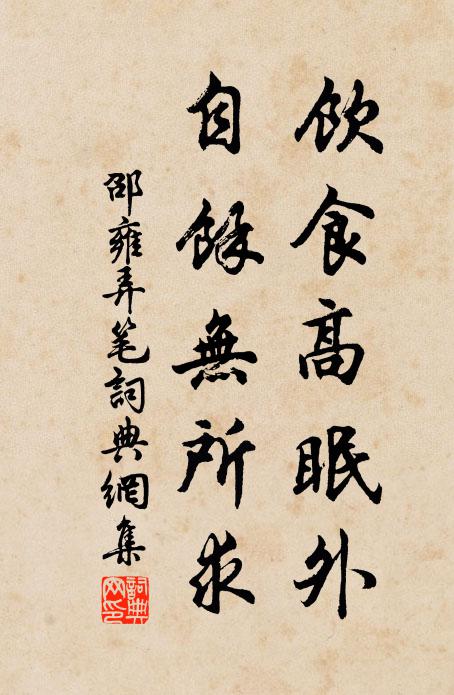 飲食高眠外
自餘無所求
邵雍弄笔詞典網集
詞典
网印